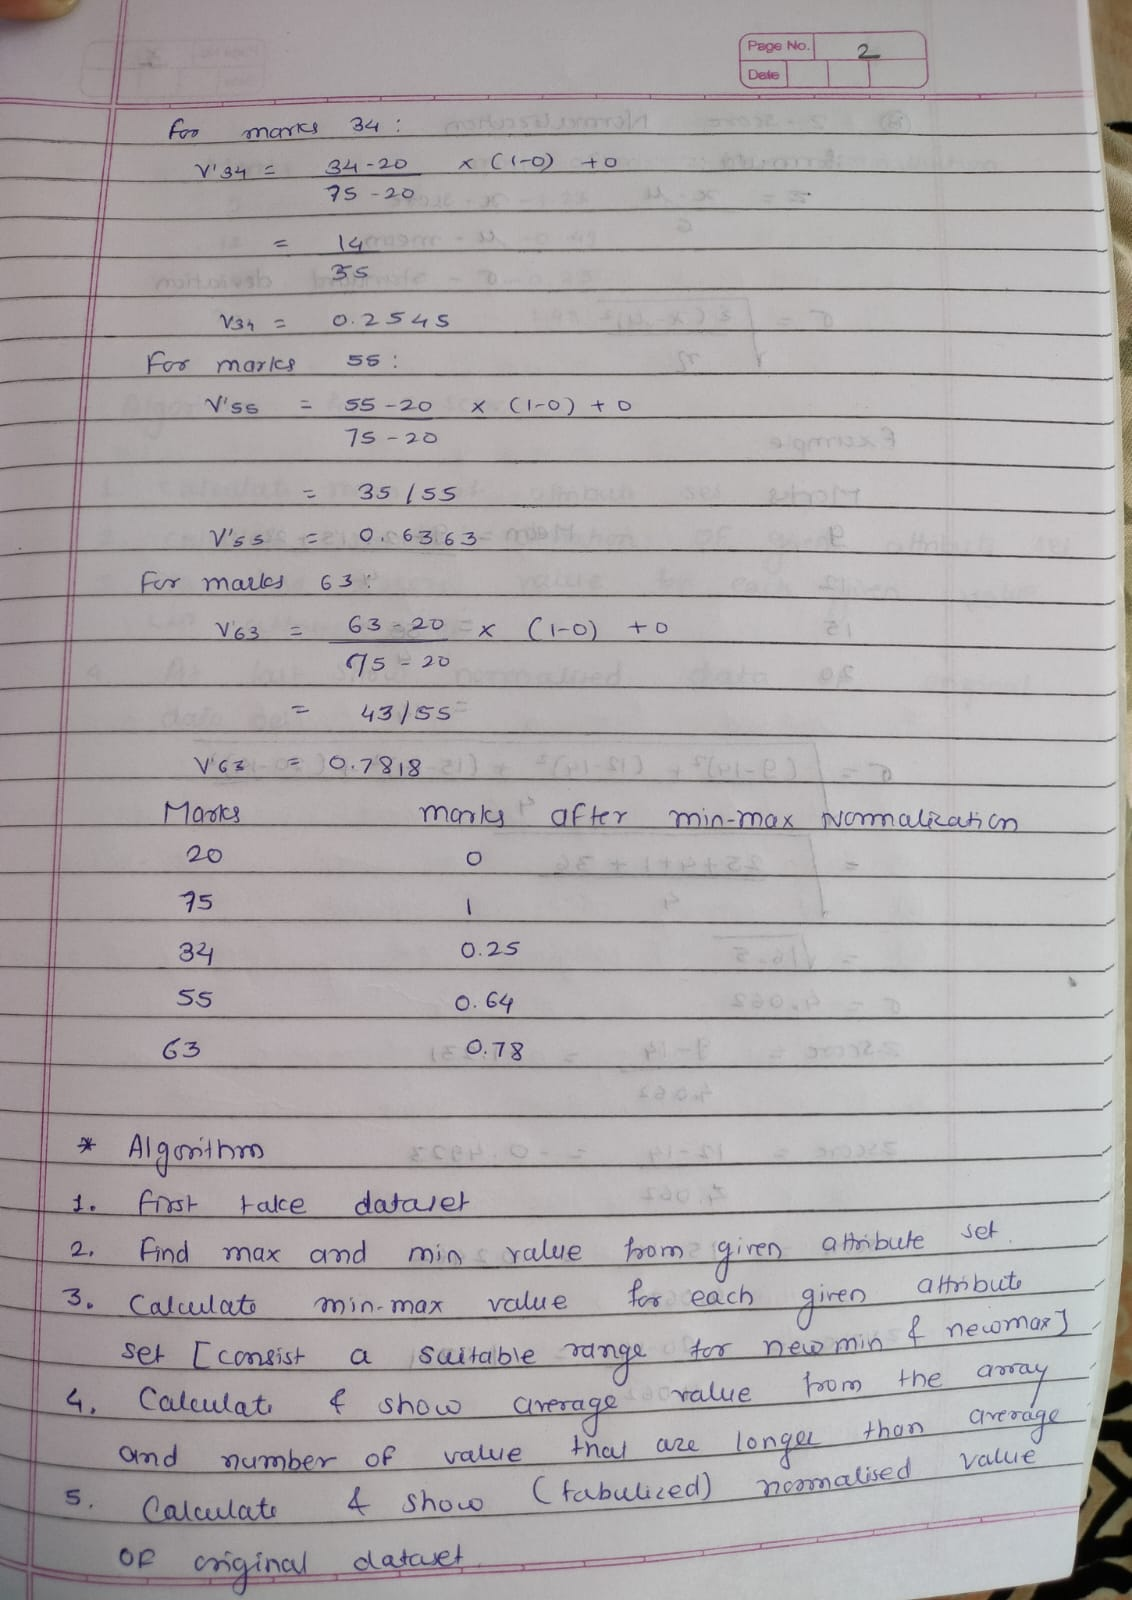 Page No. 2
Date
For marks 34 :
V'34 = 34-20 x (1-0) +0
75 - 20
= 14
35
V34 = 0.2545
For marks 55 :
V'55 = 55-20 x (1-0) + 0
75-20
= 35/55
V'55 = 0.6363
For marks 63 :
V'63 = 63-20 x (1-0) +0
75-20
= 43/55
V'63 = 0.7818
Marks marks after min-max Normalization
20 0
75 1
34 0.25
55 0.64
63 0.78
* Algorithm
1. First take dataset
2. Find max and min value from given attribute set.
3. Calculate min-max value for each given attribute
set [consist a suitable range for new min & newmax]
4. Calculate & show average value from the array
and number of value that are longer than average
5. Calculate & show (tabulized) normalised value
OF original dataset